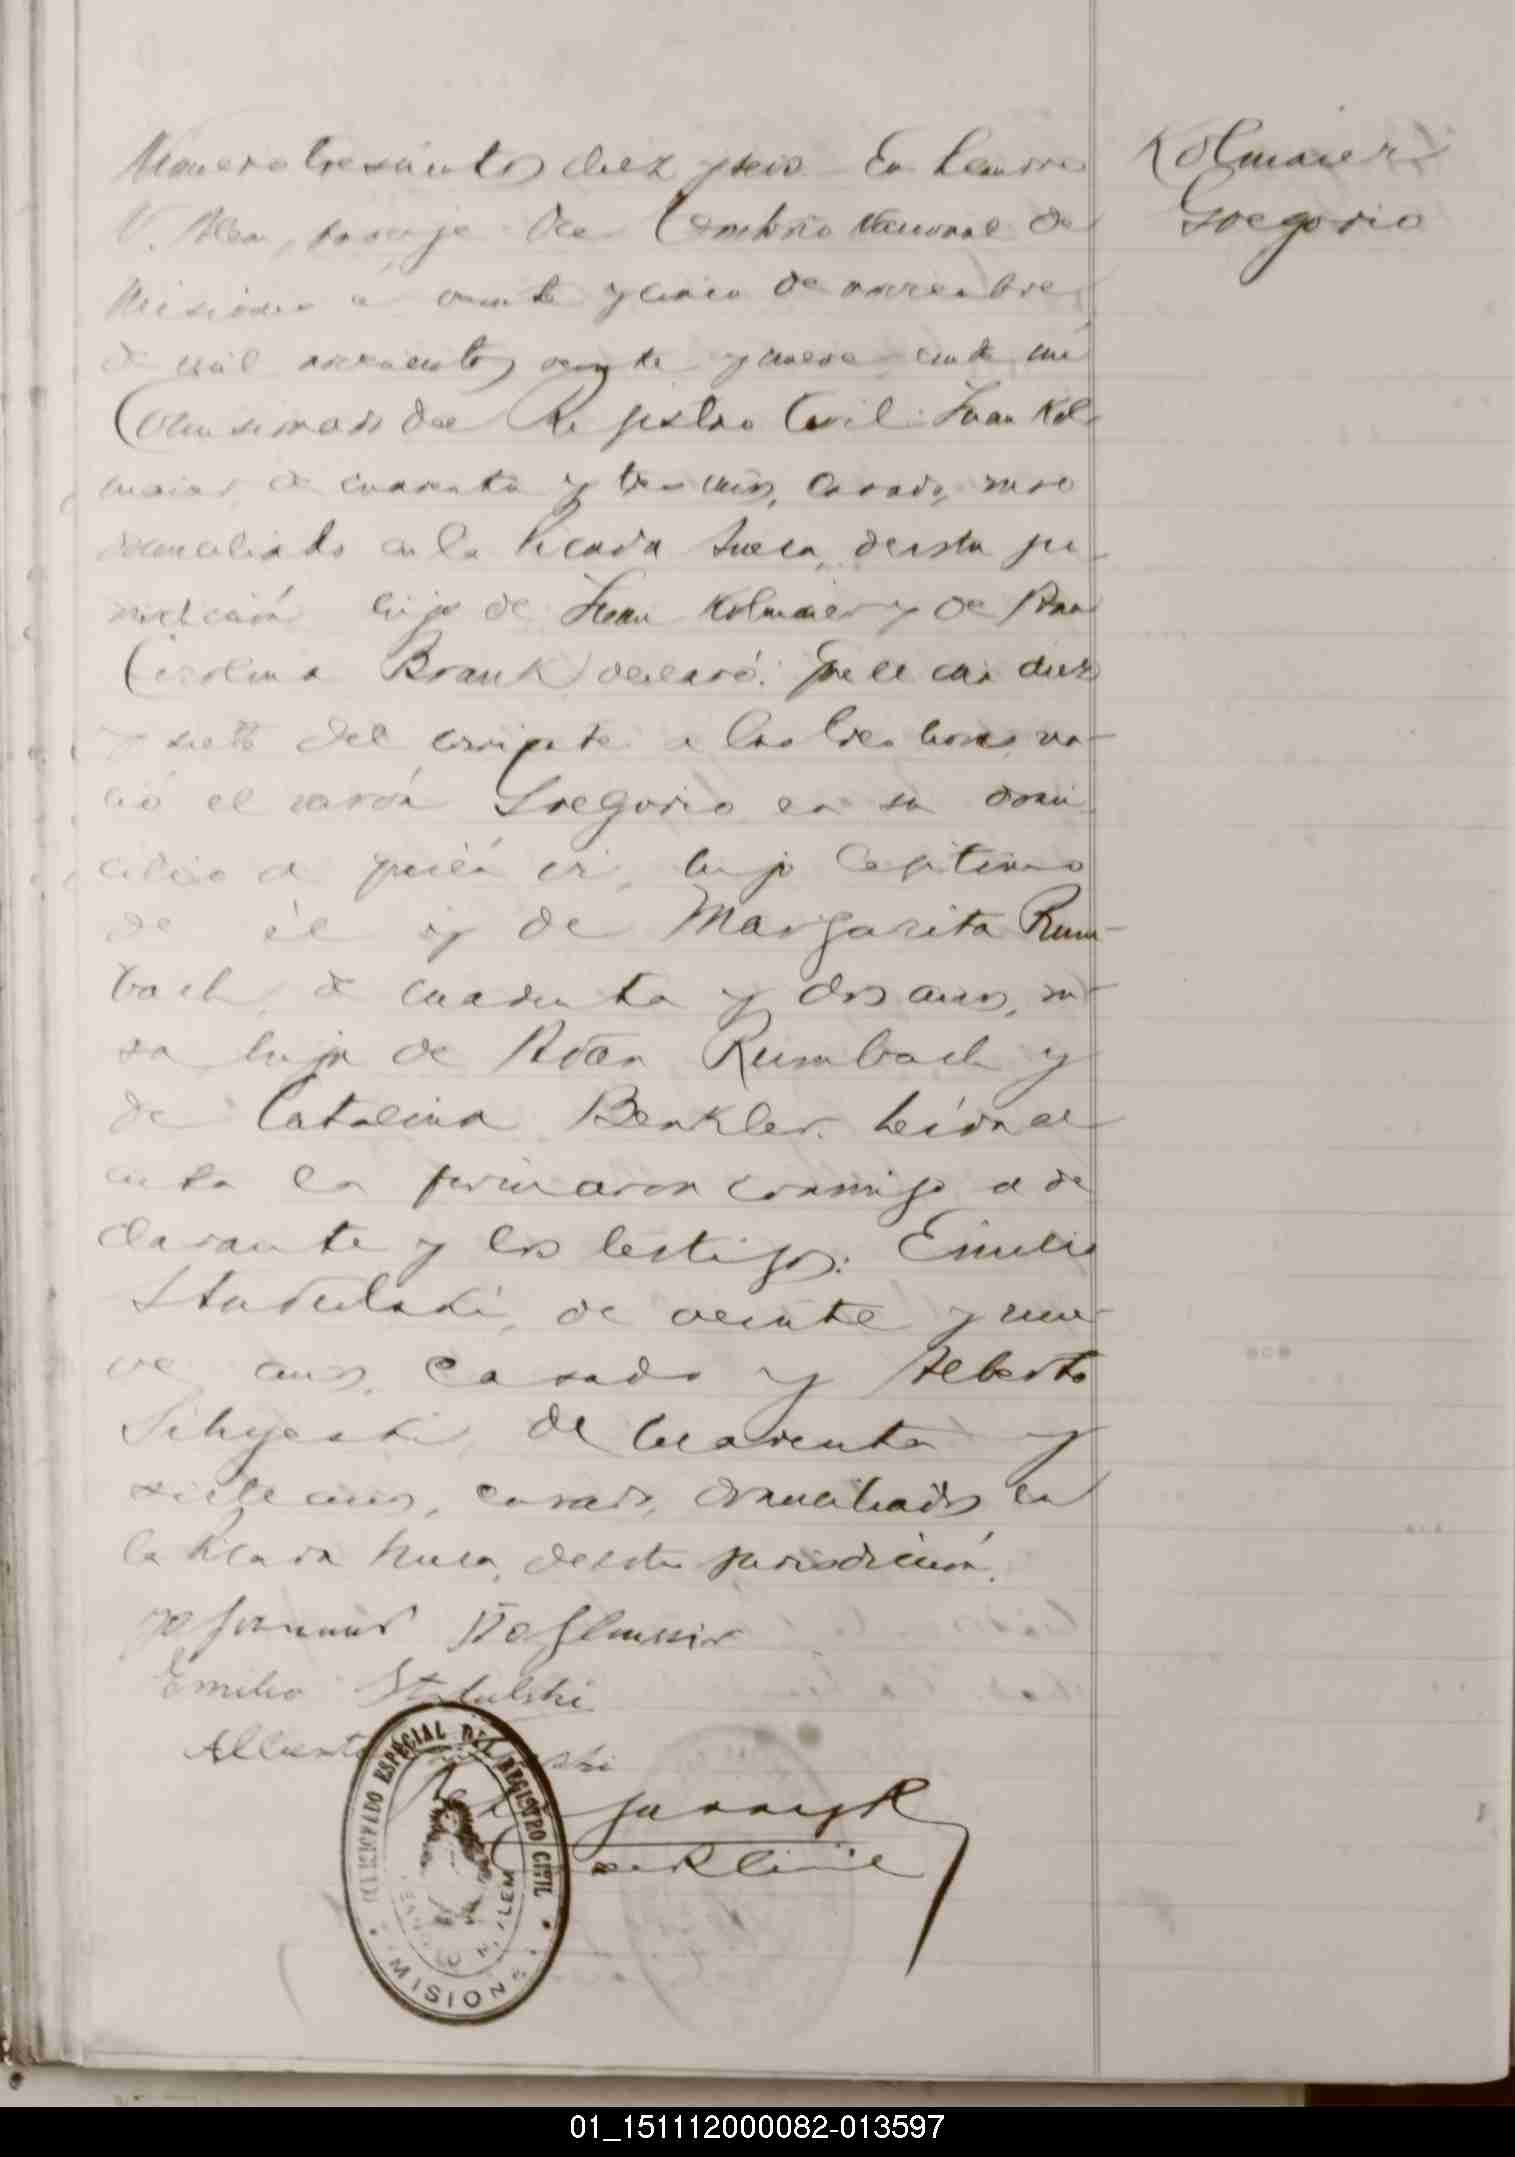 Kolmaier
Gregorio
Numero tresientos diez y seis En Leandro
N. Alem, paraje del Territorio Nacional de
Misiones a veinte y cinco de noviembre
de mil novecientos veinte y nueve ante mi
Comisionado del Registro Civil: Juan Kol-
maier, de cuarenta y tres años, casado, ruso
domiciliado en la Picada Sueca, de esta ju-
risdicción hijo de Juan Kolmaier y de Ana
Carolina Brauk declaró: Que el dia diez
y siete del corriente a las tres horas, na-
ció el varón Gregorio en su domi-
cilio a quién vi, hijo legitimo
de él y de Margarita Rum-
bach, de cuarenta y dos años, ru-
sa hija de Adan Rumbach y
de Catalina Benkler. Leida el
acta la firmaron conmigo el de
clarante y los testigos: Emilio
Stadulski, de veinte y nue-
ve años, casado y Alberto
de cuarenta y
siete años, casado, domiciliados en
la Picada Sueca, de esta jurisdicción.
Johannes
Emilio Stadulski
Alberto
COMISIONADO ESPECIAL DEL REGISTRO CIVIL
LEANDRO N. ALEM
MISIONES
01_151112000082-013597